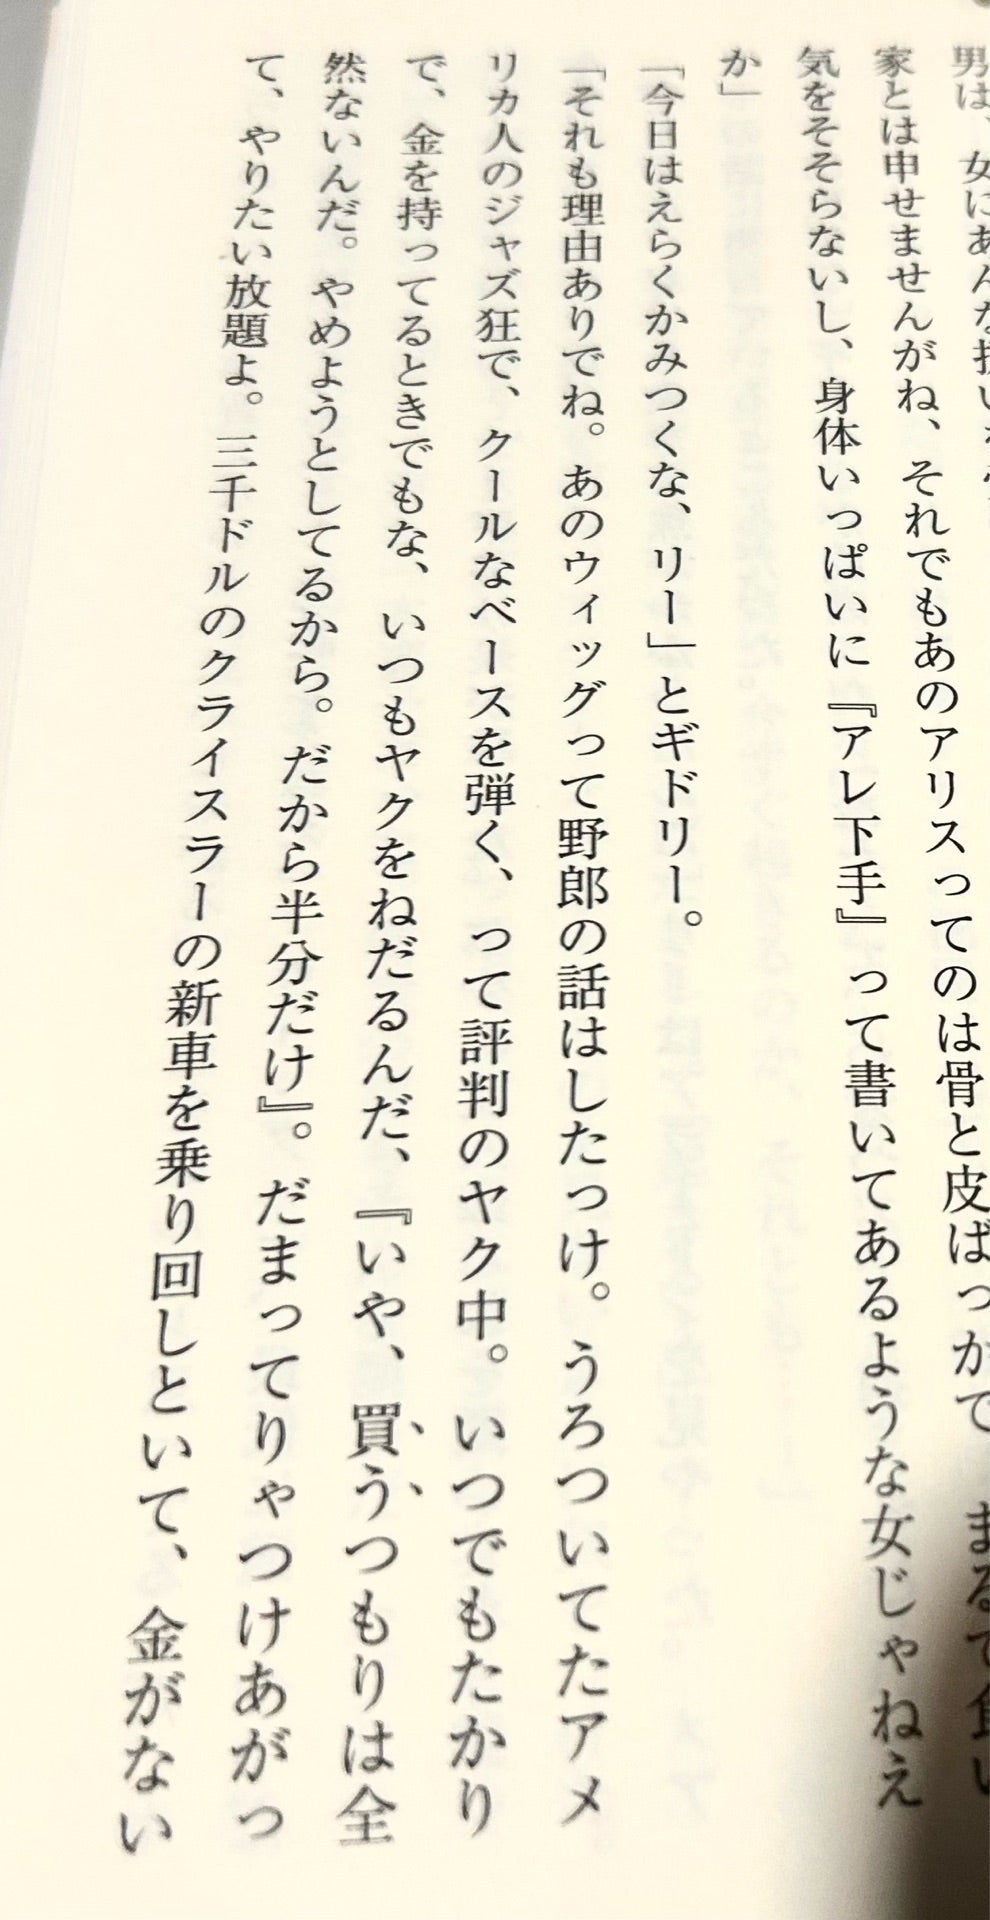 男は、女にあんな扱い
家とは申せませんがね、それでもあのアリスってのは骨と皮ばっかで
気をそそらないし、身体いっぱいに『アレ下手』って書いてあるような女じゃねえ
か」
「今日はえらくかみつくな、リー」とギドリー。
「それも理由ありでね。あのウィッグって野郎の話はしたっけ。うろついてたアメ
リカ人のジャズ狂で、クールなベースを弾く、って評判のヤク中。いつでもたかり
で、金を持ってるときでもな、いつもヤクをねだるんだ、『いや、買うつもりは全
然ないんだ。やめようとしてるから。だから半分だけ』。だまってりゃつけあがっ
て、やりたい放題よ。三千ドルのクライスラーの新車を乗り回しといて、金がない